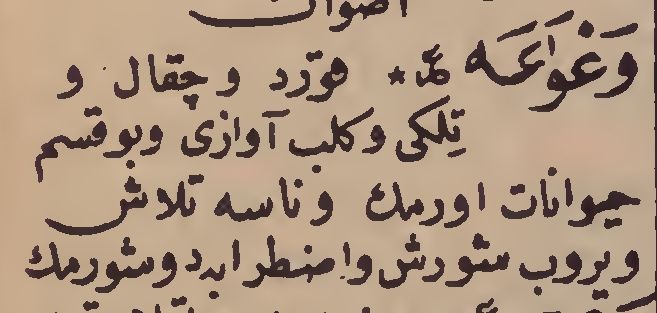 اصوات
وَغْوَاعَه ٭ قورد وچقال و
تِلكى وكلب آوازى وبو قسم
حيوانات اورمك وناسه تلاش
ويروب شورش واضطرابه دوشورمك